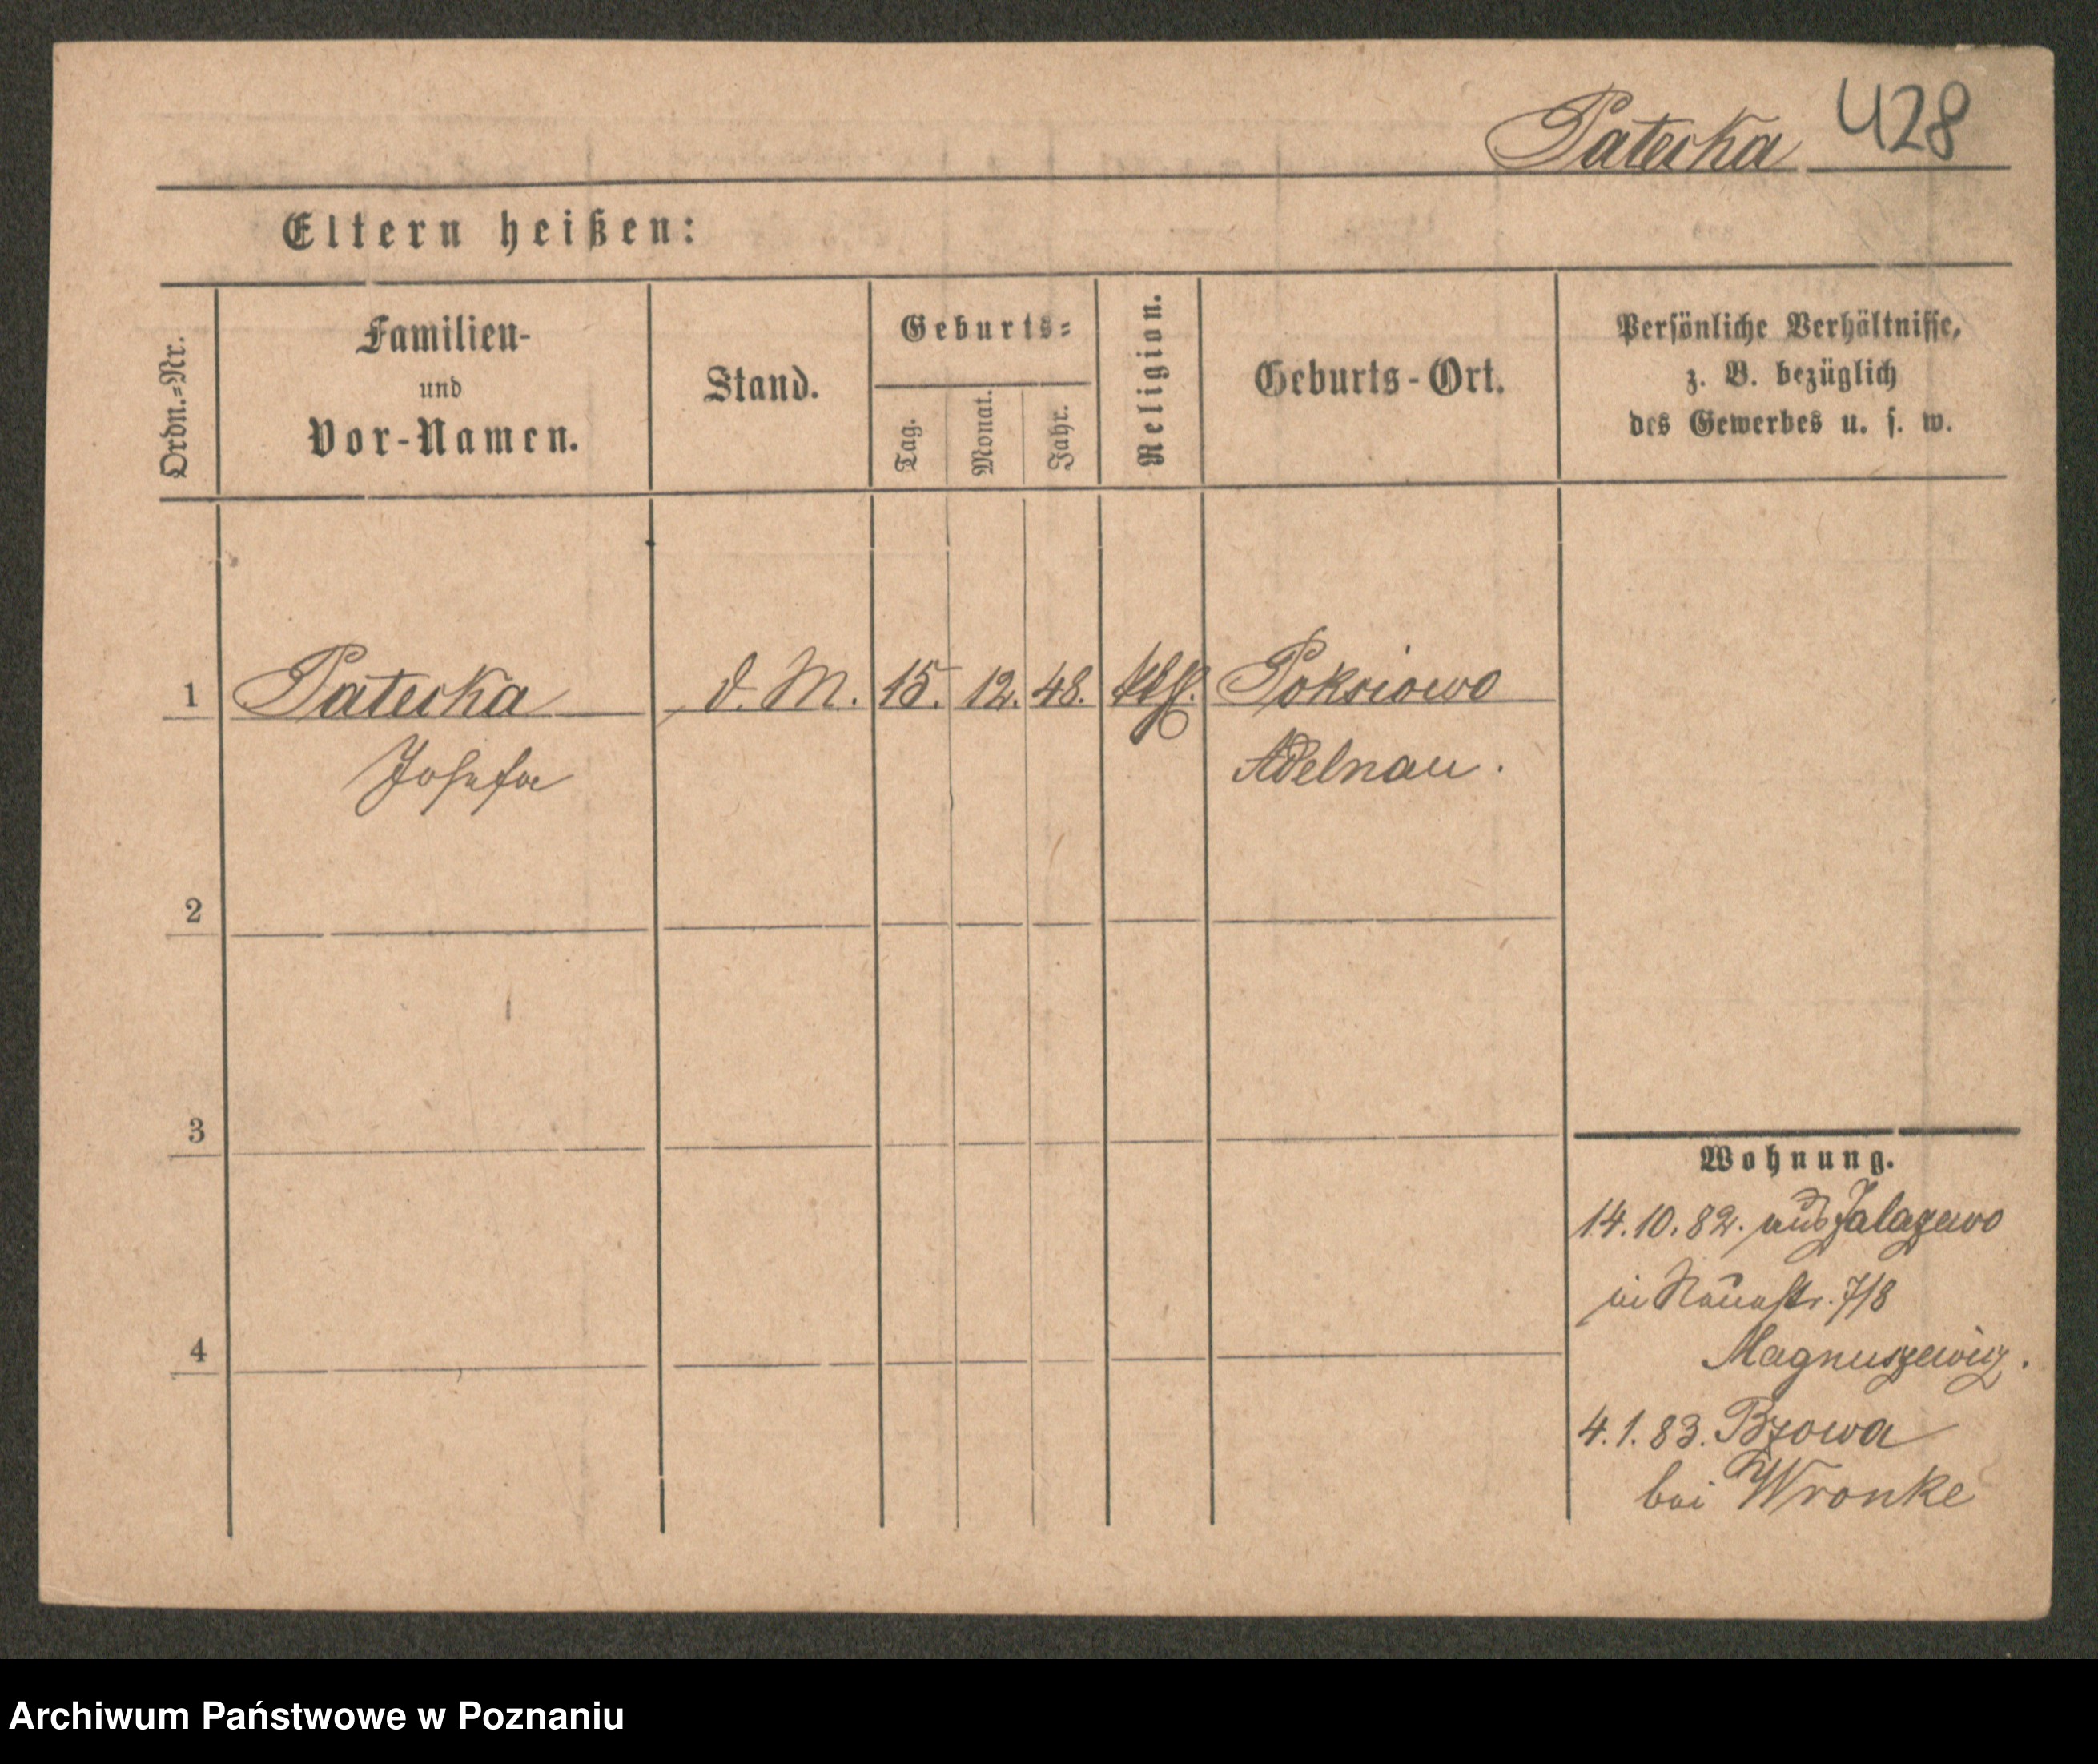 Patecka 428
Eltern heißen:
Ordn.=Nr.
Familien-
und
Vor-Namen.
Stand.
Geburts=
Tag.
Monat.
Jahr.
Religion.
Geburts-Ort.
Persönliche Verhältnisse,
z. B. bezüglich
des Gewerbes u. s. w.
1 Patecka d. M. 15. 12. 48. kth.
Josefa Adelnau.
2
3
Wohnung.
14.10.82. aus
in Neuestr. 7/8
4
Magnuszewicz.
4.1.83. Bzowa
bei Wronke
Archiwum Państwowe w Poznaniu